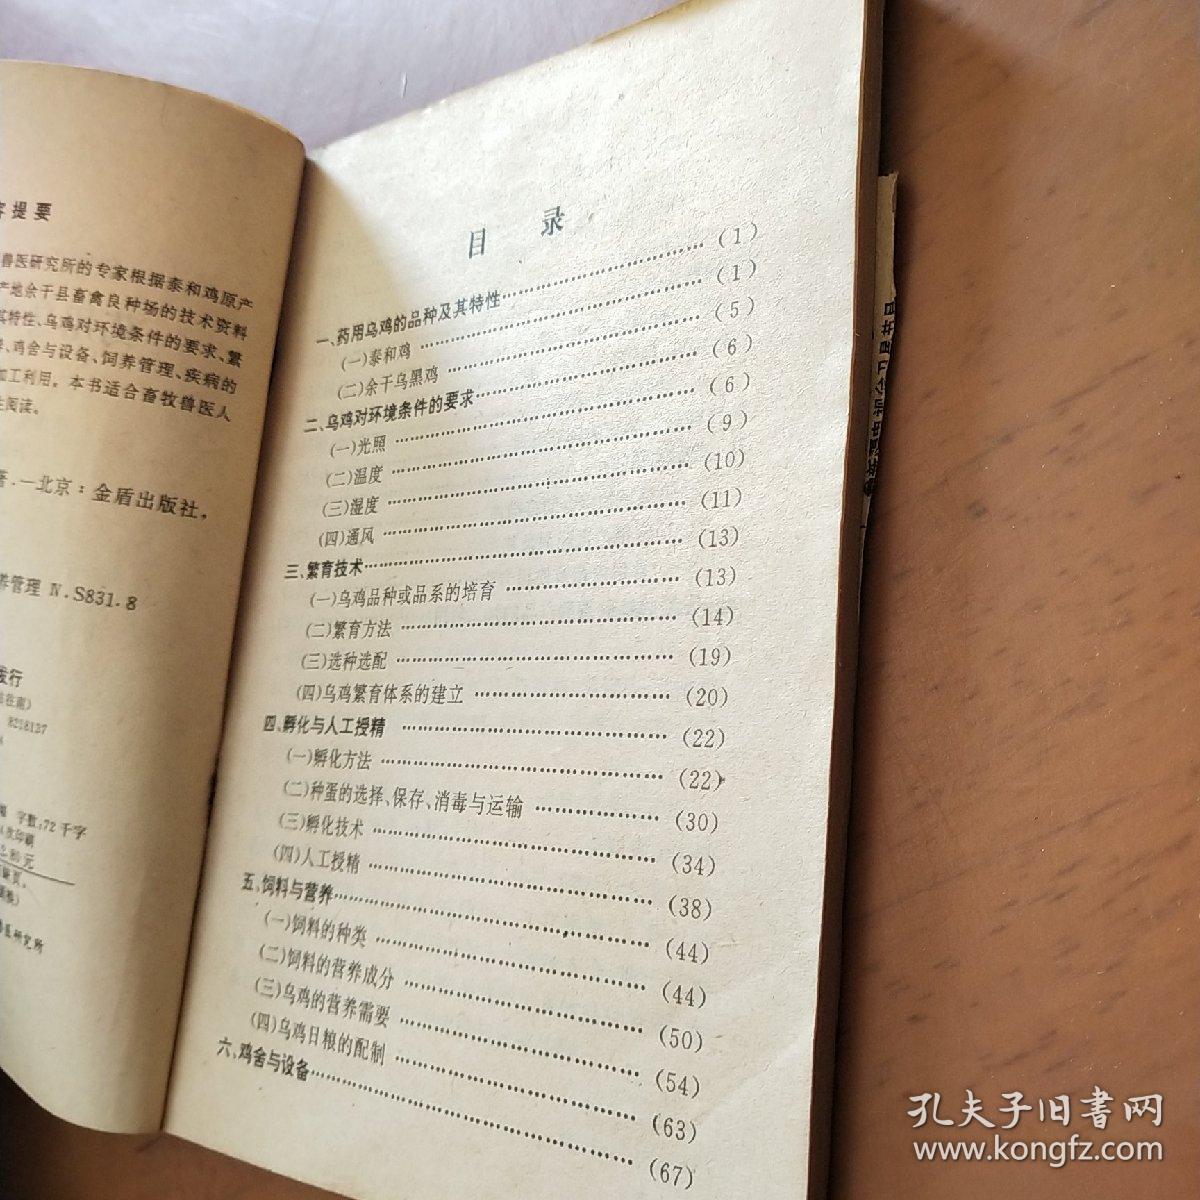 容提要
兽医研究所的专家根据泰和鸡原产
产地余干县畜禽良种场的技术资料
其特性、乌鸡对环境条件的要求、繁
养、鸡舍与设备、饲养管理、疾病的
加工利用。本书适合畜牧兽医人
阅读。
著.—北京:金盾出版社,
养管理 N.S831.8
发行
8218137
字数:72千字
次印刷
元
医研究所
目 录
一、药用乌鸡的品种及其特性……(1)
(一)泰和鸡……(1)
(二)余干乌黑鸡……(5)
二、乌鸡对环境条件的要求……(6)
(一)光照……(6)
(二)温度……(9)
(三)湿度……(10)
(四)通风……(11)
三、繁育技术……(13)
(一)乌鸡品种或品系的培育……(13)
(二)繁育方法……(14)
(三)选种选配……(19)
(四)乌鸡繁育体系的建立……(20)
四、孵化与人工授精……(22)
(一)孵化方法……(22)
(二)种蛋的选择、保存、消毒与运输……(30)
(三)孵化技术……(34)
(四)人工授精……(38)
五、饲料与营养……(44)
(一)饲料的种类……(44)
(二)饲料的营养成分……(50)
(三)乌鸡的营养需要……(54)
(四)乌鸡日粮的配制……(63)
六、鸡舍与设备……(67)
孔夫子旧书网
www.kongfz.com